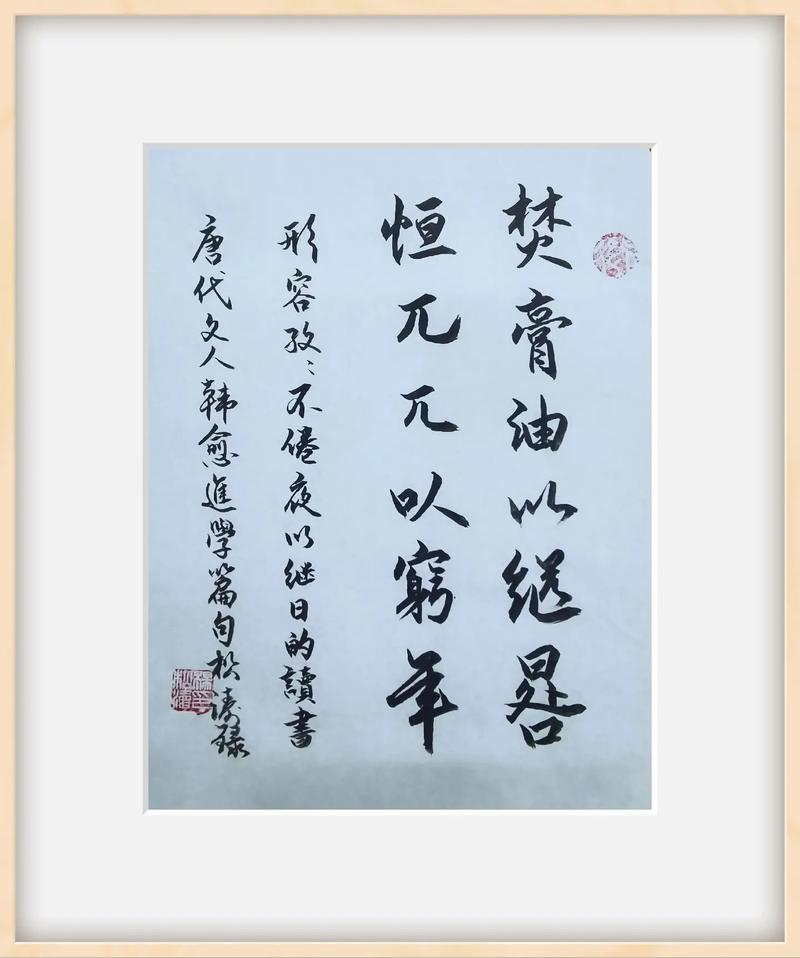 焚膏油以继晷
恒兀兀以窮年
形容孜〻不倦夜以继日的讀書
唐代文人韩愈進學篇句松涛録